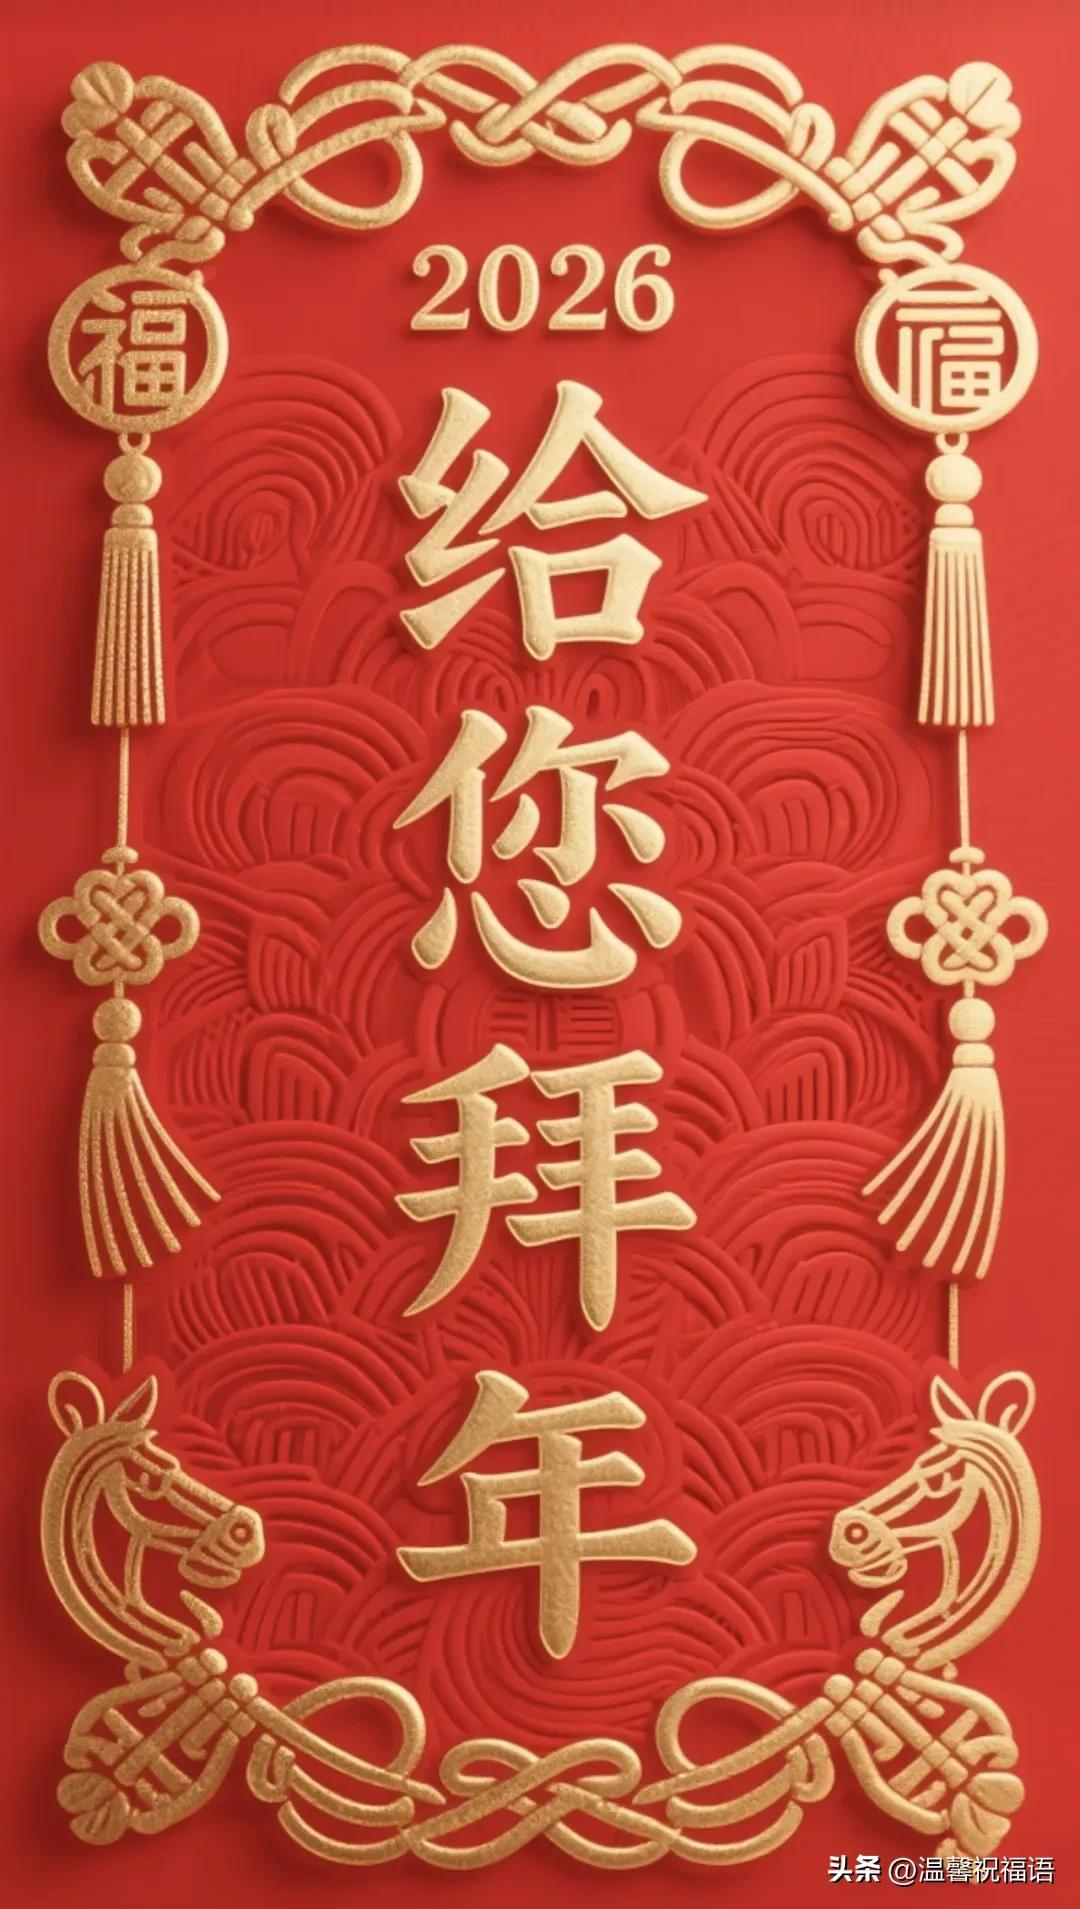 2026
福
福
给
您
拜
年
头条 @温馨祝福语